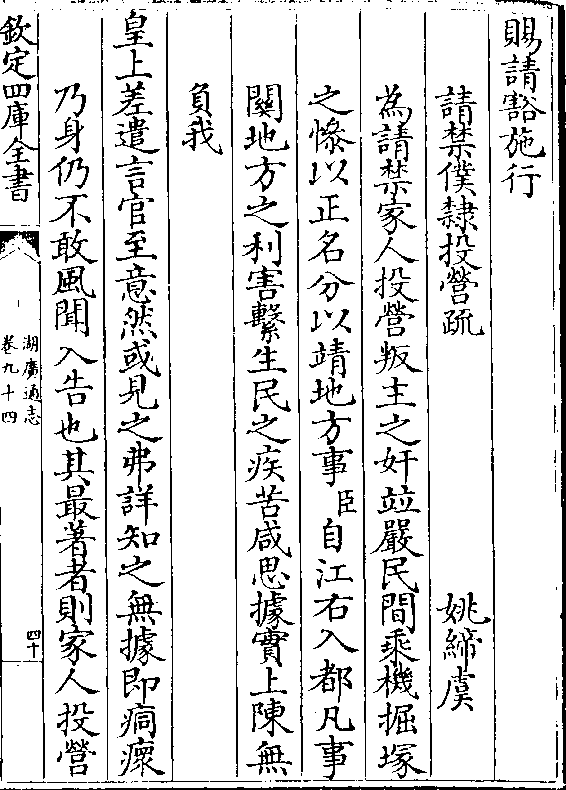 賜請豁施行
請禁僕隸投營疏 姚締虞
為請禁家人投營叛主之奸竝嚴民間乘機掘塚
之慘以正名分以靖地方事臣自江右入都凡事
關地方之利害繫生民之疾苦咸思據實上陳無
負我
皇上差遣言官至意然或見之弗詳知之無據即痌瘝
乃身仍不敢風聞入告也其最著者則家人投營
欽定四庫全書
湖廣通志
卷九十四
四十